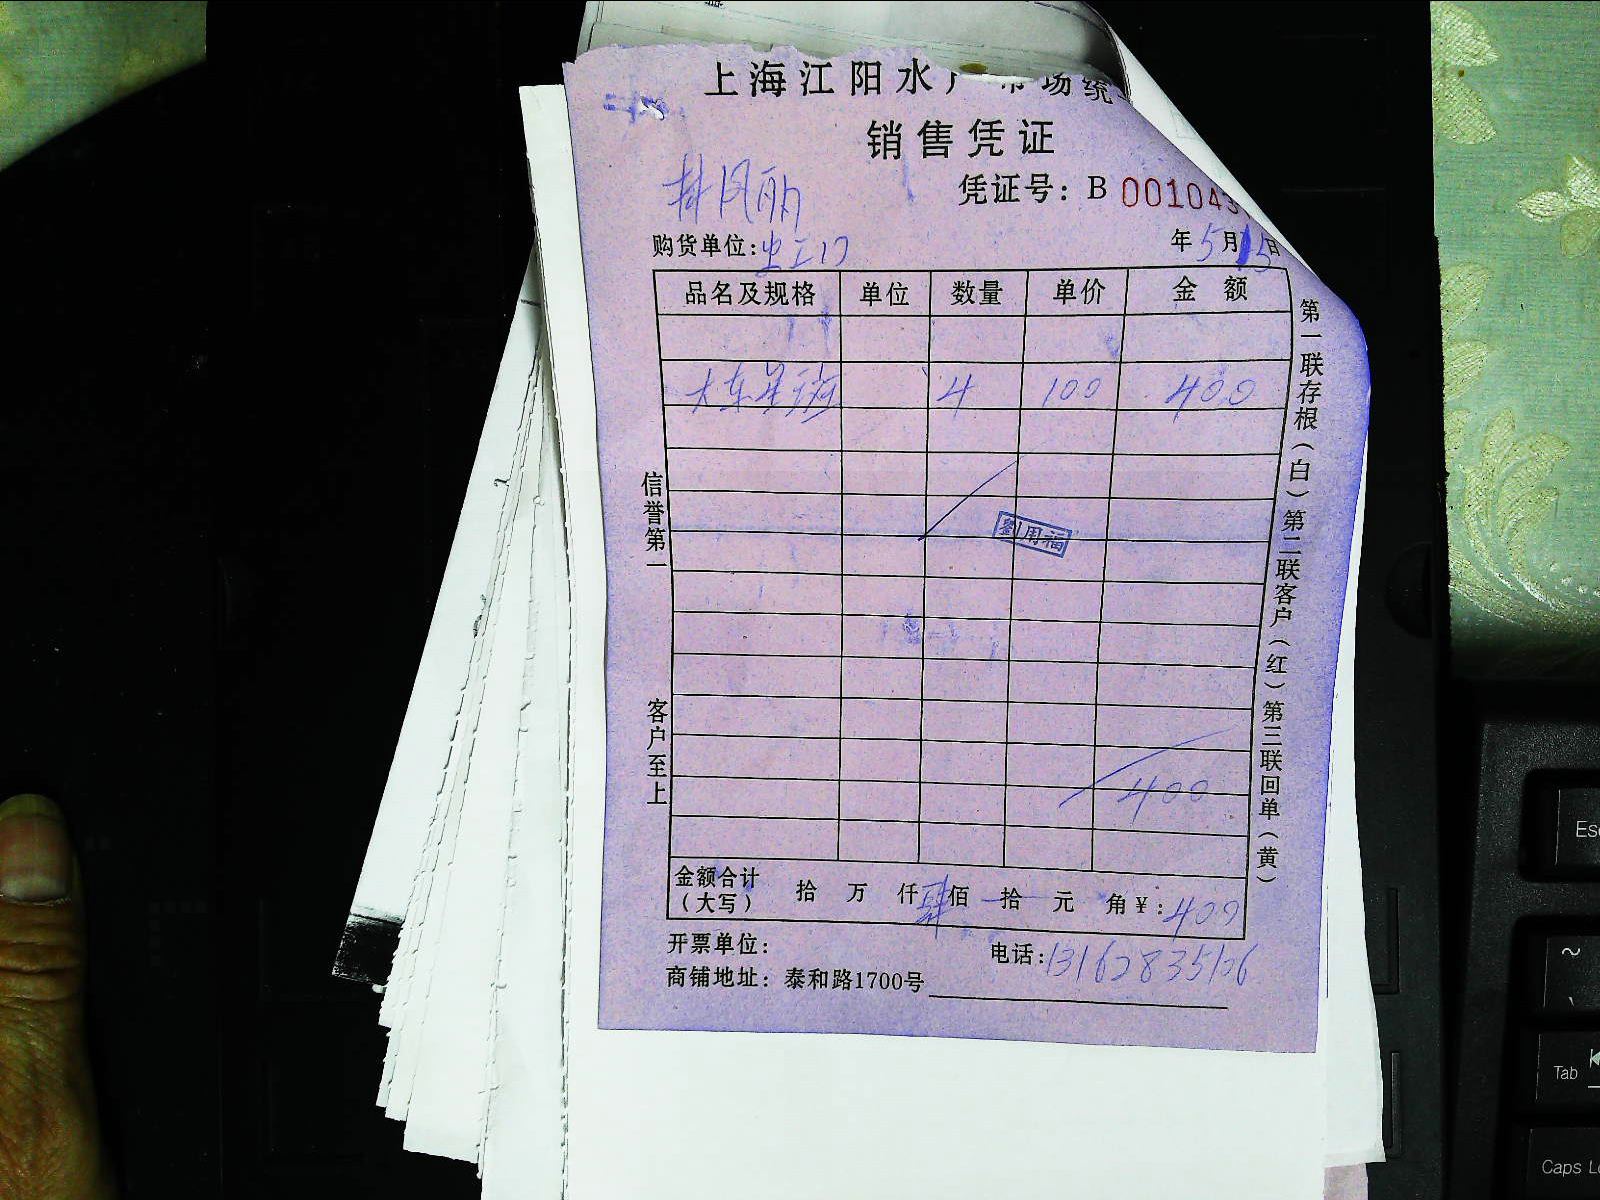 上海江阳水产市场统
销售凭证
凭证号：B 001043
购货单位：
年5月15日
品名及规格 单位 数量 单价 金额
大东星斑 4 100 400
劉用福
400
金额合计（大写） 拾 万 仟肆佰 拾 元 角 ¥：400
开票单位：
电话：
商铺地址：泰和路1700号
信誉第一
客户至上
第一联存根（白）第二联客户（红）第三联回单（黄）
Esc
~
Tab
Caps Lo